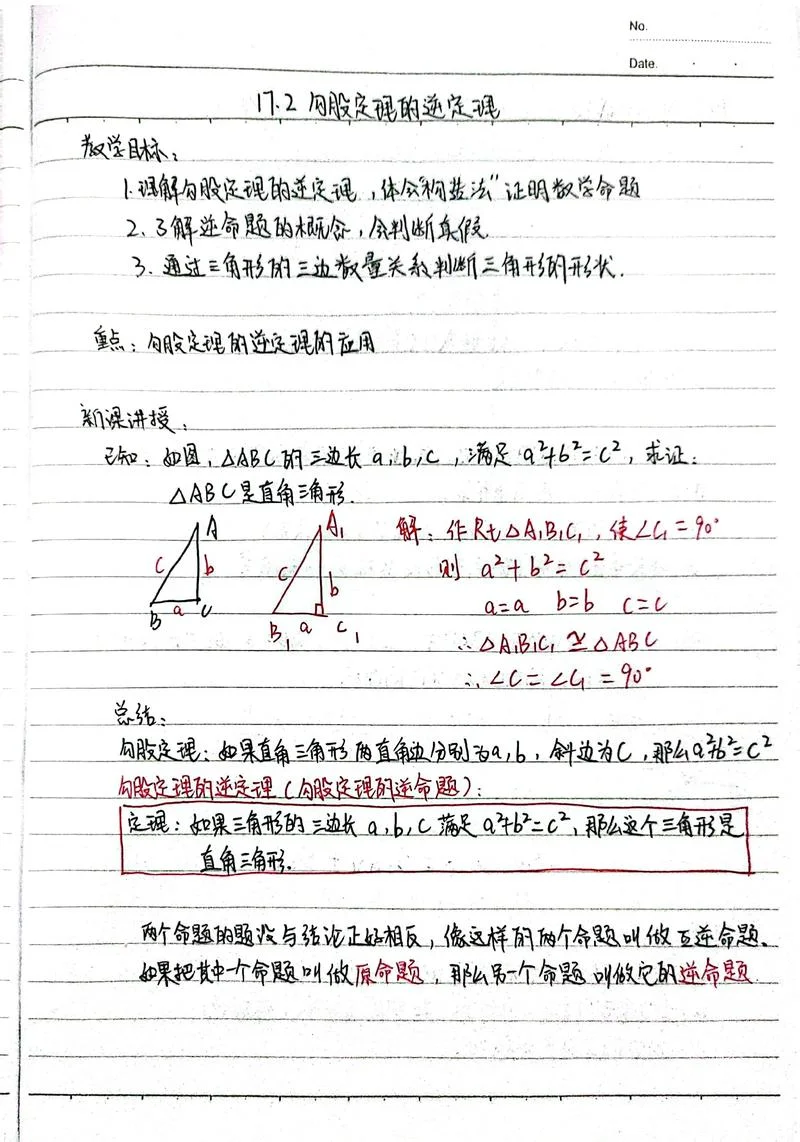 No.
Date.
17.2 勾股定理的逆定理
教学目标：
1. 理解勾股定理的逆定理，体会“构造法”证明数学命题
2. 了解逆命题的概念，会判断真假.
3. 通过三角形的三边数量关系判断三角形的形状.
重点：勾股定理的逆定理的应用
新课讲授：
已知：如图，△ABC的三边长 a,b,c，满足 a²+b²=c²，求证：
△ABC是直角三角形.
A
c
b
B a C
A₁
c
b
B₁ a C₁
解：作Rt△A₁B₁C₁，使∠C₁=90°
则 a²+b²=c²
a=a b=b c=c
∴△A₁B₁C₁≌△ABC
∴∠C=∠C₁=90°
总结：
勾股定理：如果直角三角形两直角边分别为a,b，斜边为c，那么a²+b²=c²
勾股定理的逆定理（勾股定理的逆命题）：
定理：如果三角形的三边长 a,b,c 满足 a²+b²=c²，那么这个三角形是
直角三角形.
两个命题的题设与结论正好相反，像这样的两个命题叫做互逆命题。
如果把其中一个命题叫做原命题，那么另一个命题叫做它的逆命题